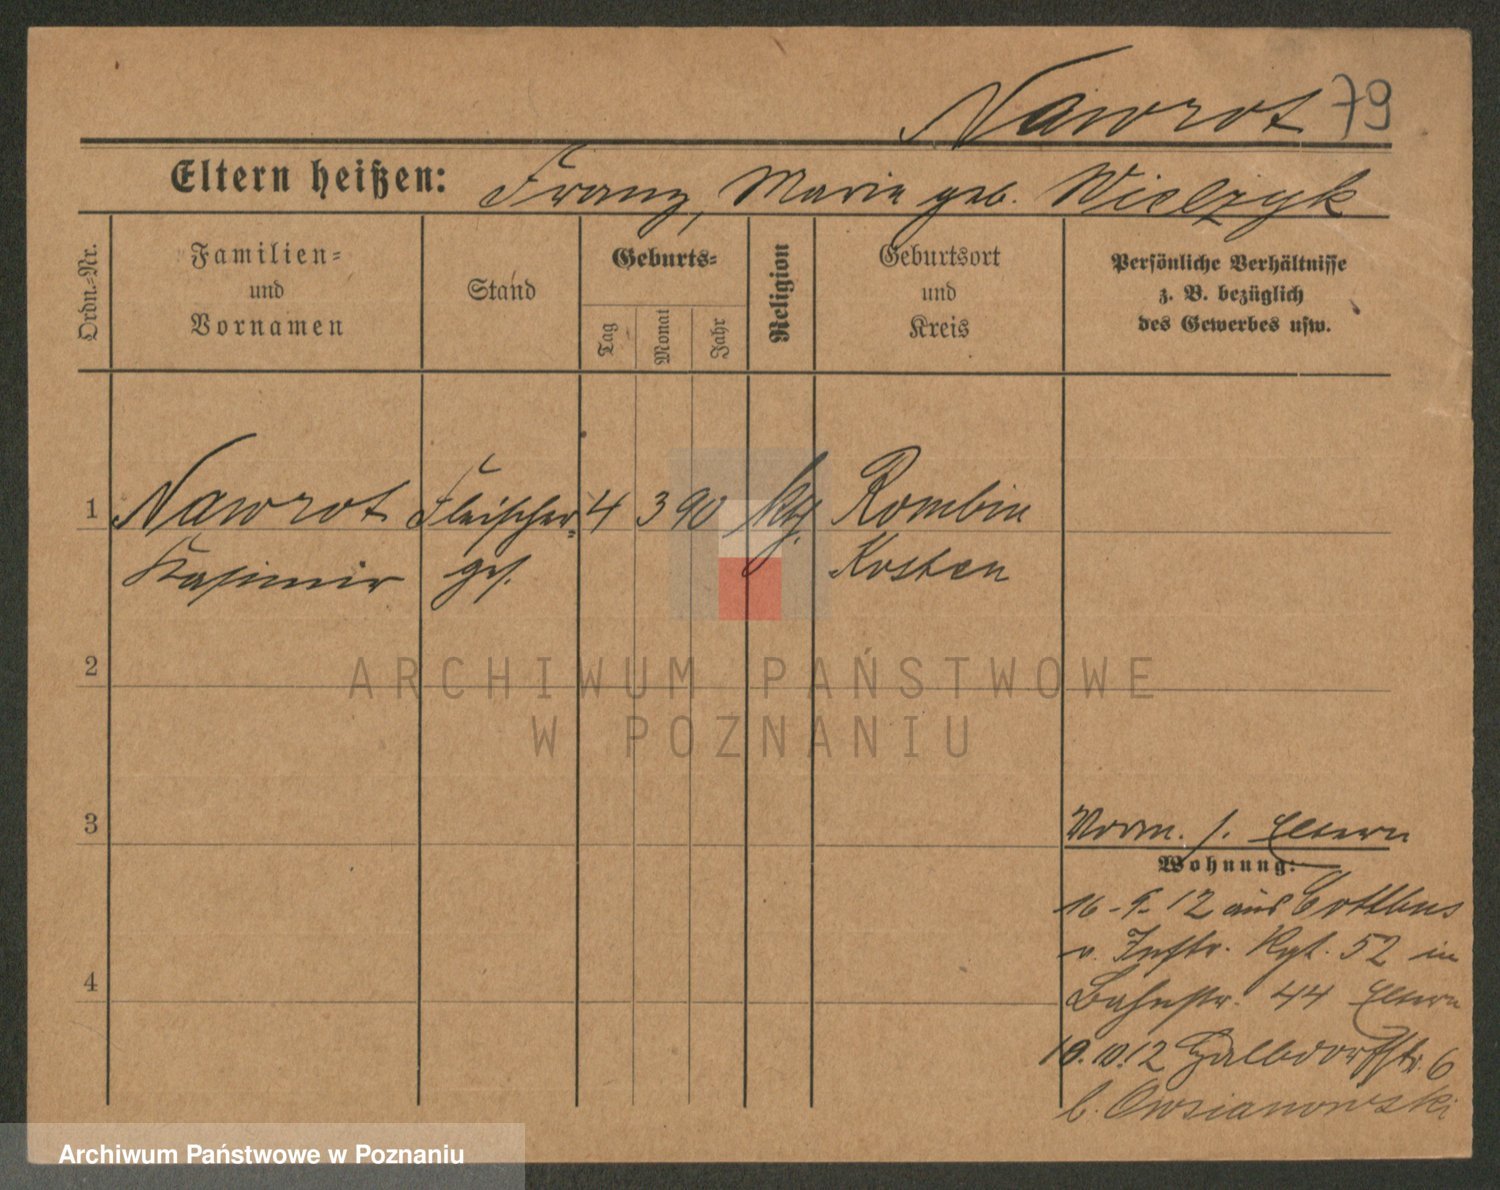 Nawrot 79
Eltern heißen: Franz, Marie geb. Wielzyk
Ordn.-Nr.
Familien-
und
Vornamen
Stand
Geburts-
Tag
Monat
Jahr
Religion
Geburtsort
und
Kreis
Persönliche Verhältnisse
z. B. bezüglich
des Gewerbes usw.
1 Nawrot Fleischer- 4 3 90 kth. Rombin
Kasimir ges. Kosten
2
ARCHIWUM PAŃSTWOWE
W POZNANIU
3
Vorm. s. Eltern
Wohnung:
16-9-12 aus Cottbus
v. Inftr. Rgt. 52 in
4
Bahnstr. 44 Eltern
10.10.12 Halbdorfstr. 6
b. Owsianowski
Archiwum Państwowe w Poznaniu